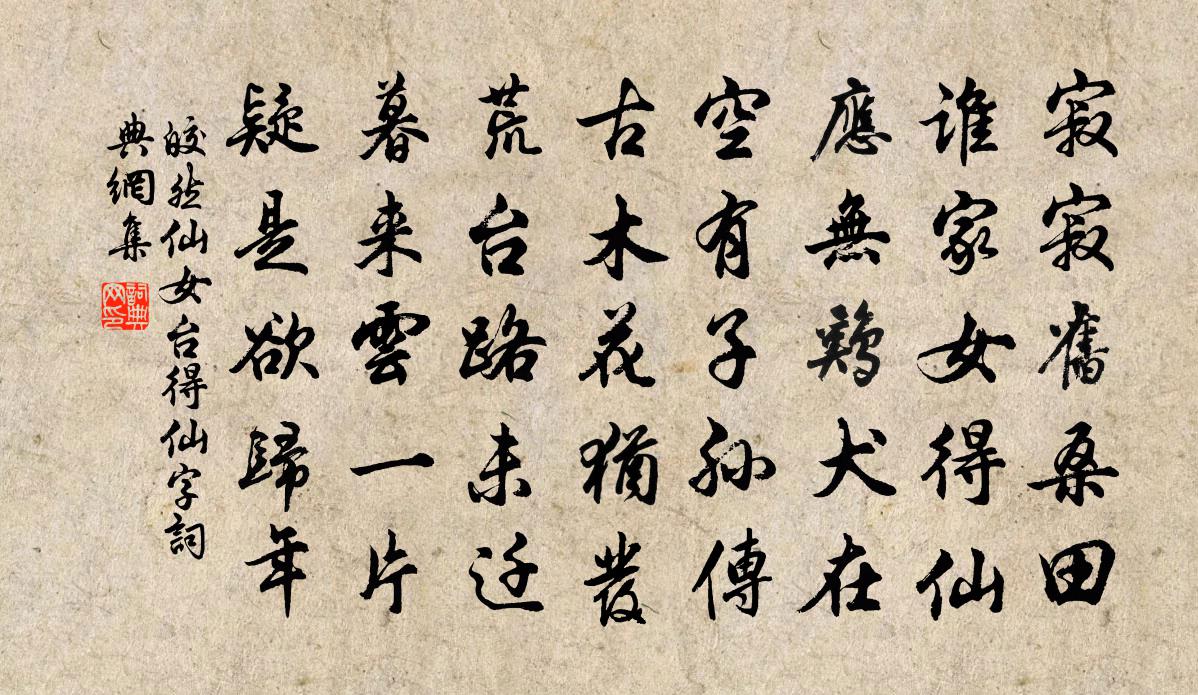 寂寂舊桑田
誰家女得仙
應無鷄犬在
空有子孫傳
古木花猶發
荒台路未迁
暮来雲一片
疑是欲歸年
皎然仙女台得仙字詞
典網集
詞典
网印